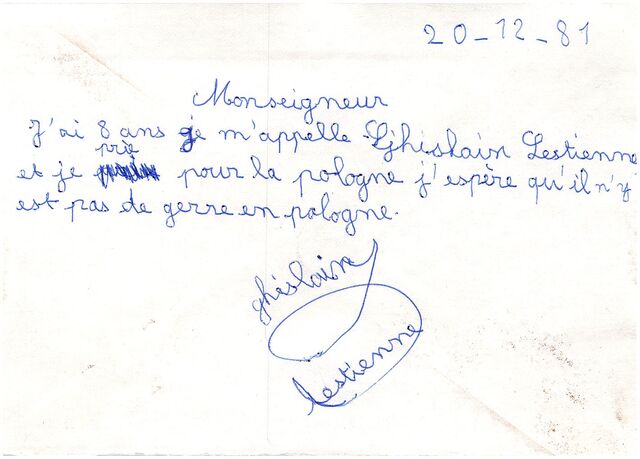 20-12-81
Monseigneur
J'ai 8 ans je m'appelle Ghislain Lestienne
et je prie pour la pologne j'espère qu'il n'y
est pas de gerre en pologne.
ghislain
Lestienne